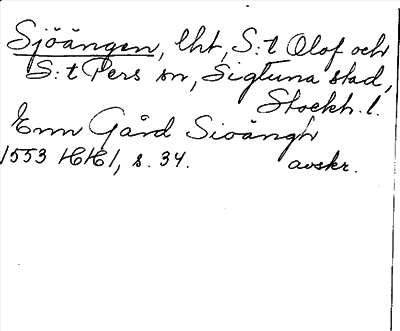 Sjöängen, lht, S:t Olof och
S:t Pers sn, Sigtuna stad,
Stockh. l.
Enn Gård Sioängh
1553 HH1, s. 34. avskr.